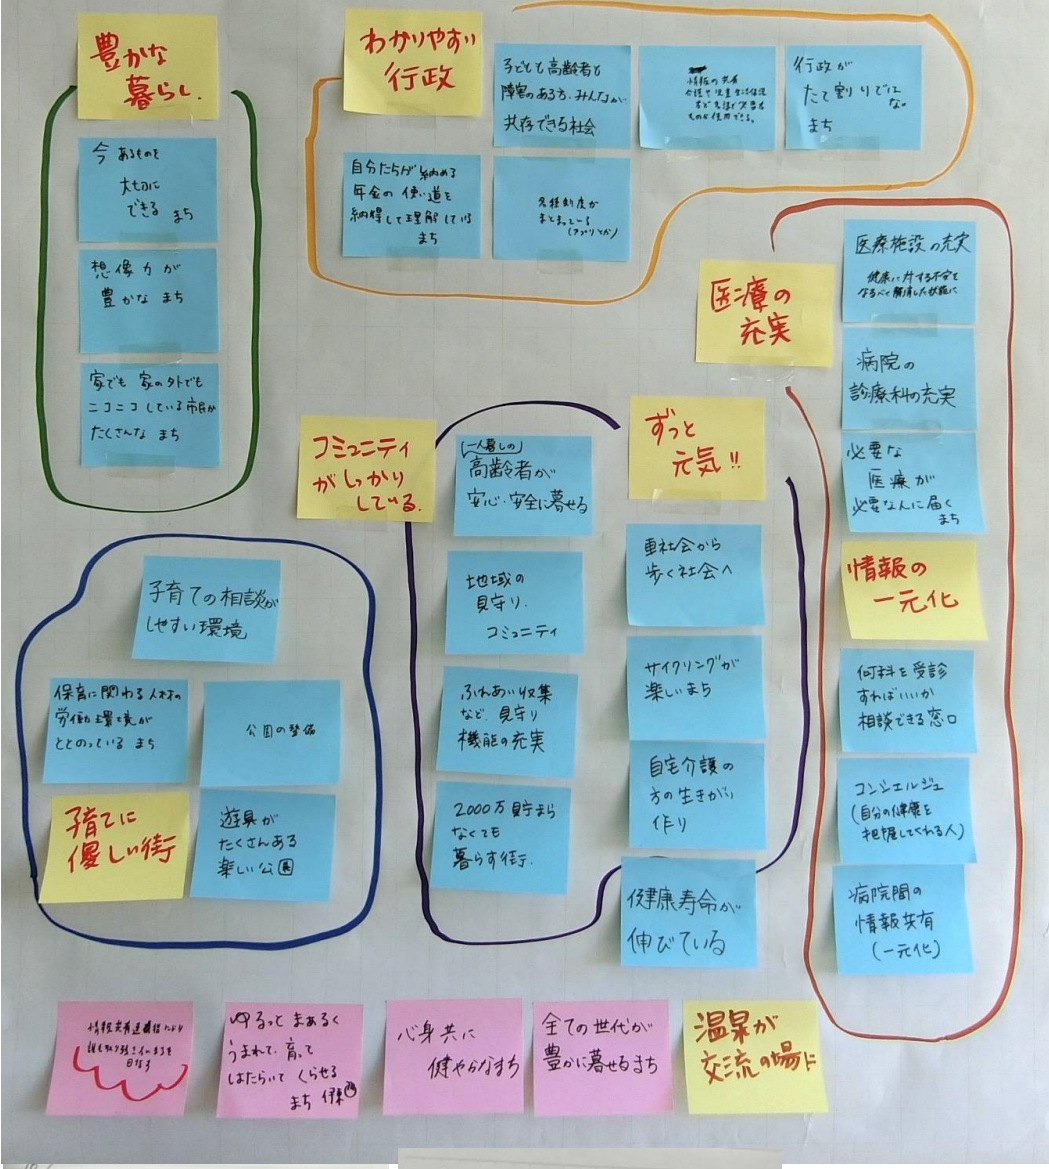 豊かな
暮らし.
今あるものを
大切に
できる まち
想像力が
豊かな まち
家でも 家の外でも
ニコニコしている市民が
たくさんな まち
わかりやすい
行政
子どもも高齢者も
障害のある方、みんなが
共存できる社会
情報の共有
ものが使用できる。
行政が
たて割りではな。
まち
自分たちが納める
年金の使い道を
納得して理解している
まち
各種制度が
まとまっている
(アプリとか)
医療の
充実
医療施設の充実
健康に対する不安を
なるべく解消した状態に
病院の
診療科の充実
必要な
医療が
必要な人に届く
まち
情報の
一元化
何科を受診
すればいいか
相談できる窓口
コンシェルジュ
(自分の健康を
把握してくれる人)
病院間の
情報共有
(一元化)
コミュニティ
がしっかり
している.
(一人暮しの)
高齢者が
安心・安全に暮せる
地域の
見守り.
コミュニティ
ふれあい収集
など 見守り
機能の充実
2000万貯まら
なくても
暮らす街.
ずっと
元気!!
車社会から
歩く社会へ
サイクリングが
楽しいまち
自宅介護の
方の生きがい
作り
健康寿命が
伸びている
子育ての相談が
しやすい環境
保育に関わる人材の
労働環境が
ととのっている まち
公園の整備
子育てに
優しい街
遊具が
たくさんある
楽しい公園
ゆるっと まぁるく
うまれて、育って
はたらいて くらせる
まち 伊東
心身共に
健やかなまち
全ての世代が
豊かに暮せるまち
温泉が
交流の場に